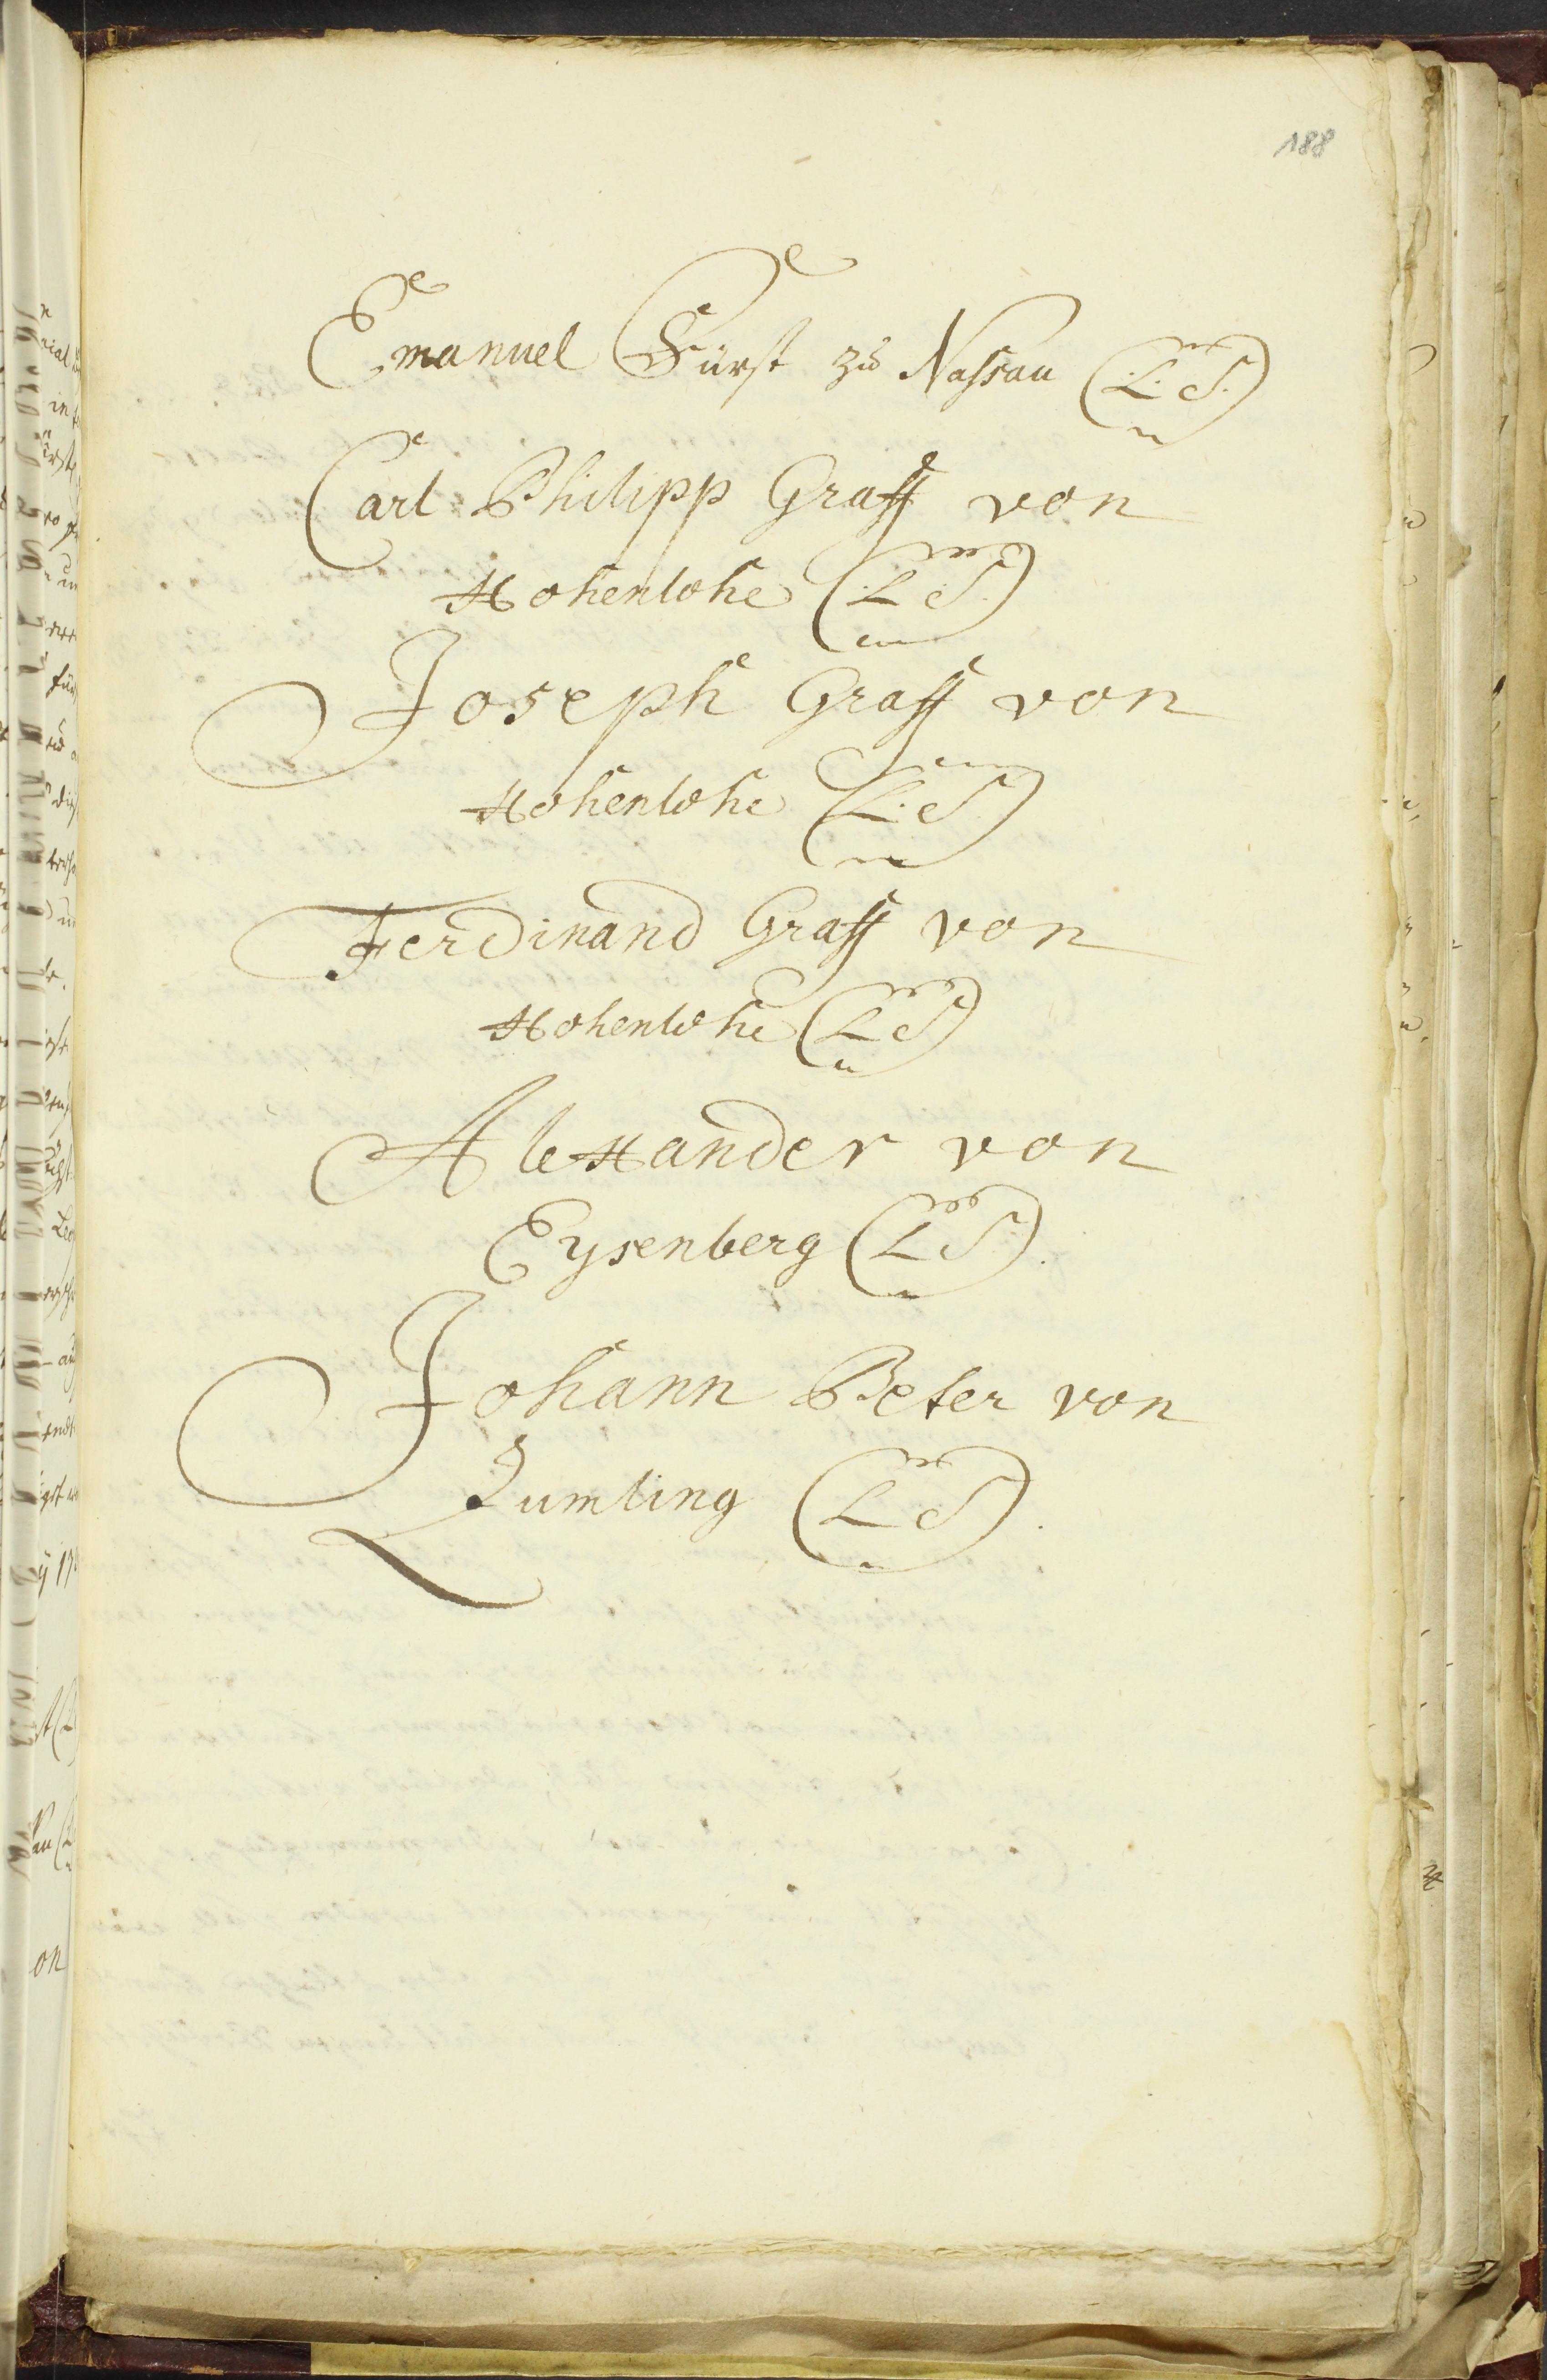 188
Emanuel Fürst zu Nassau (L. S.)
Carl Philipp Graff von
Hohenlohe (L. S.)
Joseph Graff von
Hohenlohe (L. S.)
Ferdinand Graff von
Hohenlohe (L S)
Alexander von
Eysenberg (L S).
Johann Peter von
Zumling (L S).